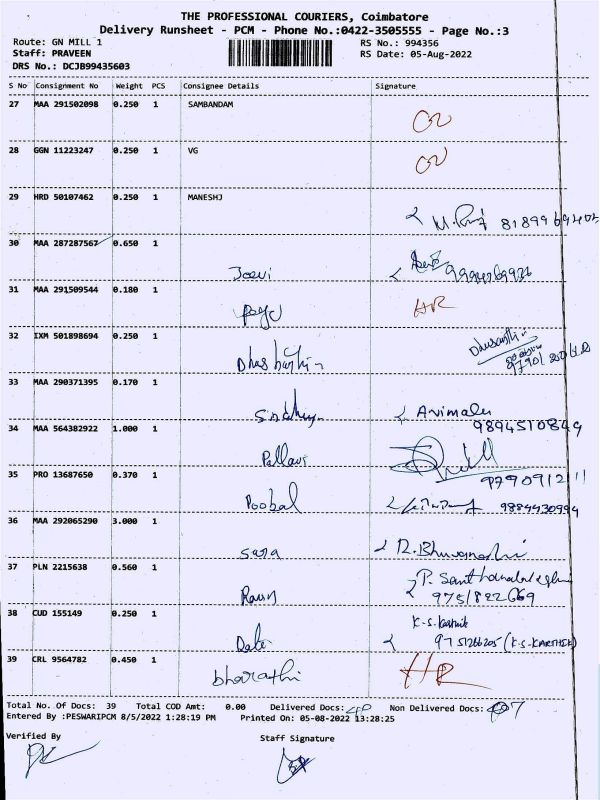 THE PROFESSIONAL COURIERS, Coimbatore
Delivery Runsheet - PCM - Phone No.:0422-3505555 - Page No.:3
Route: GN MILL 1
RS No.: 994356
Staff: PRAVEEN
RS Date: 05-Aug-2022
DRS No.: DCJB99435603
S No Consignment No Weight PCS Consignee Details Signature
27 MAA 291502098 0.250 1 SAMBANDAM
28 GGN 11223247 0.250 1 VG
29 HRD 50107462 0.250 1 MANESHJ
30 MAA 287287567 0.650 1
31 MAA 291509544 0.180 1 HR
32 IXM 501898694 0.250 1
33 MAA 290371395 0.170 1
9894510849
34 MAA 564382922 1.000 1 Pallavi
35 PRO 13687650 0.370 1 Poobal 9884430994
36 MAA 292065290 3.000 1 Sara
37 PLN 2215638 0.560 1
9751822669
38 CUD 155149 0.250 1 (K-S-KARTHIK)
39 CRL 9564782 0.450 1 bharathi HR
Total No. Of Docs: 39 Total COD Amt: 0.00 Delivered Docs: Non Delivered Docs:
Entered By :PESWARIPCM 8/5/2022 1:28:19 PM Printed On: 05-08-2022 13:28:25
Verified By Staff Signature